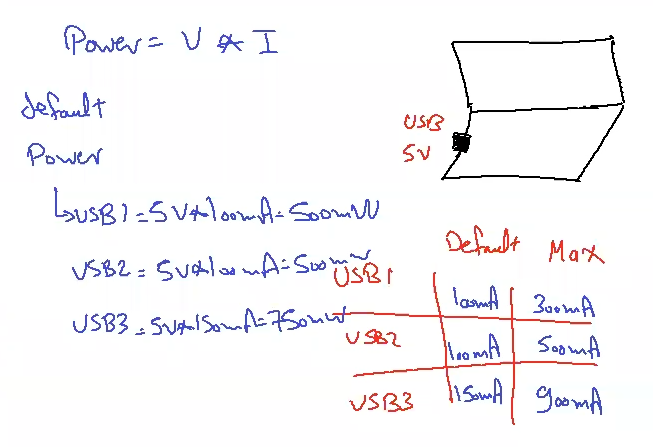 Power = V * I
default
Power
USB1 = 5V*100mA = 500mW
USB2 = 5V*100mA = 500mw
USB3 = 5V*150mA = 750mW
USB
5V
Default Max
USB1 100mA 300mA
USB2 100mA 500mA
USB3 150mA 900mA